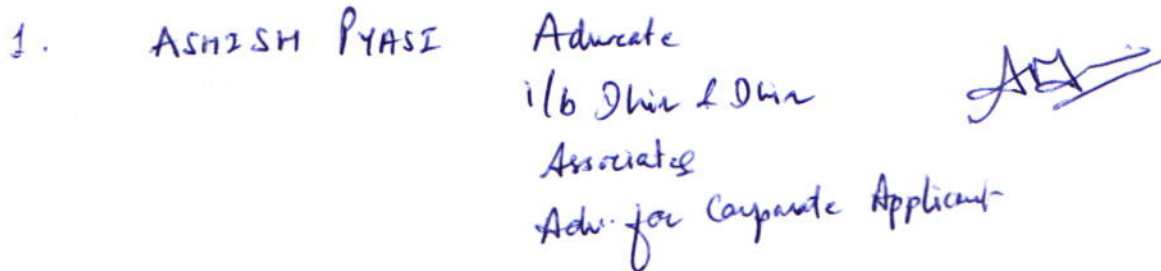 1. ASHISH PYASI Advocate
i/b Dhir & Dhir
Associates
Adv. for Corporate Applicant